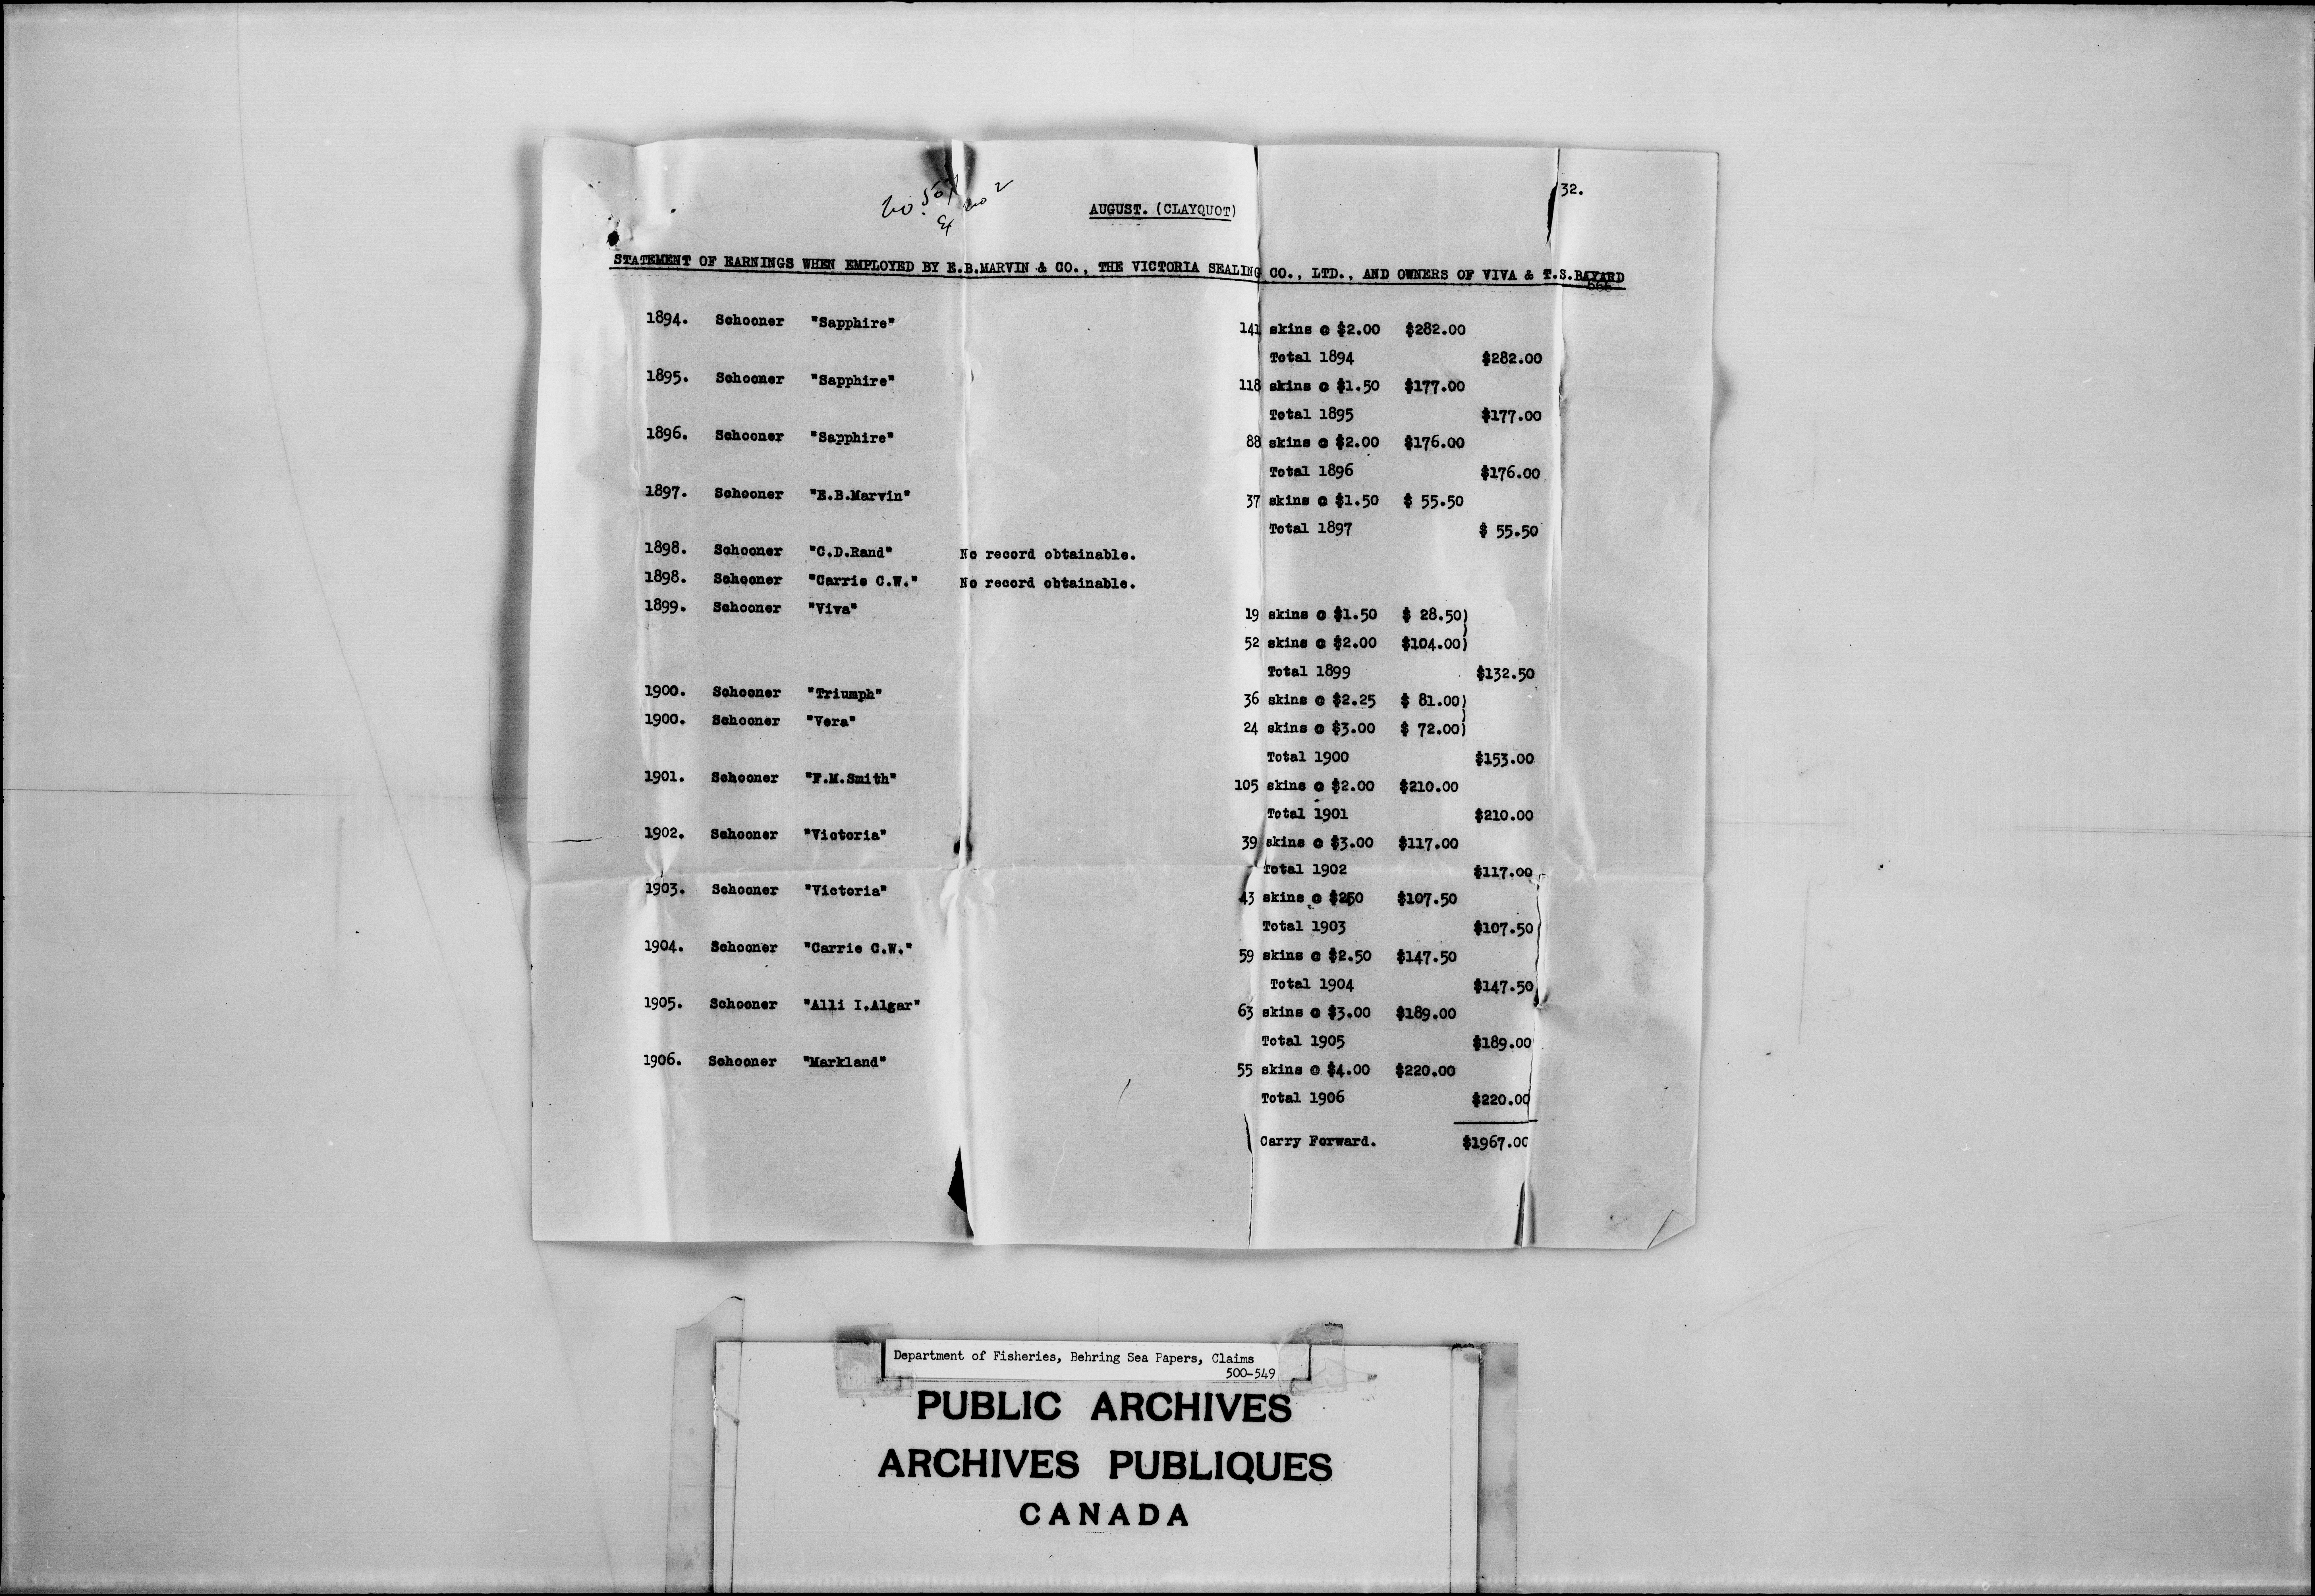 32.
No. 507
Ex No 2
AUGUST. (CLAYQUOT)
STATEMENT OF EARNINGS WHEN EMPLOYED BY E.B.MARVIN & CO., THE VICTORIA SEALING CO., LTD., AND OWNERS OF VIVA & T.S.BAYARD
1894. Schooner "Sapphire" 141 skins @ $2.00 $282.00
Total 1894 $282.00
1895. Schooner "Sapphire" 118 skins @ $1.50 $177.00
Total 1895 $177.00
1896. Schooner "Sapphire" 88 skins @ $2.00 $176.00
Total 1896 $176.00
1897. Schooner "E.B.Marvin" 37 skins @ $1.50 $ 55.50
Total 1897 $ 55.50
1898. Schooner "C.D.Rand" No record obtainable.
1898. Schooner "Carrie C.W." No record obtainable.
1899. Schooner "Viva" 19 skins @ $1.50 $ 28.50)
52 skins @ $2.00 $104.00)
Total 1899 $132.50
1900. Schooner "Triumph" 36 skins @ $2.25 $ 81.00)
1900. Schooner "Vera" 24 skins @ $3.00 $ 72.00)
Total 1900 $153.00
1901. Schooner "F.M.Smith" 105 skins @ $2.00 $210.00
Total 1901 $210.00
1902. Schooner "Victoria" 39 skins @ $3.00 $117.00
Total 1902 $117.00
1903. Schooner "Victoria" 43 skins @ $250 $107.50
Total 1903 $107.50
1904. Schooner "Carrie C.W." 59 skins @ $2.50 $147.50
Total 1904 $147.50
1905. Schooner "Alli I.Algar" 63 skins @ $3.00 $189.00
Total 1905 $189.00
1906. Schooner "Markland" 55 skins @ $4.00 $220.00
Total 1906 $220.00
Carry Forward. $1967.00
Department of Fisheries, Behring Sea Papers, Claims
500-549
PUBLIC ARCHIVES
ARCHIVES PUBLIQUES
CANADA